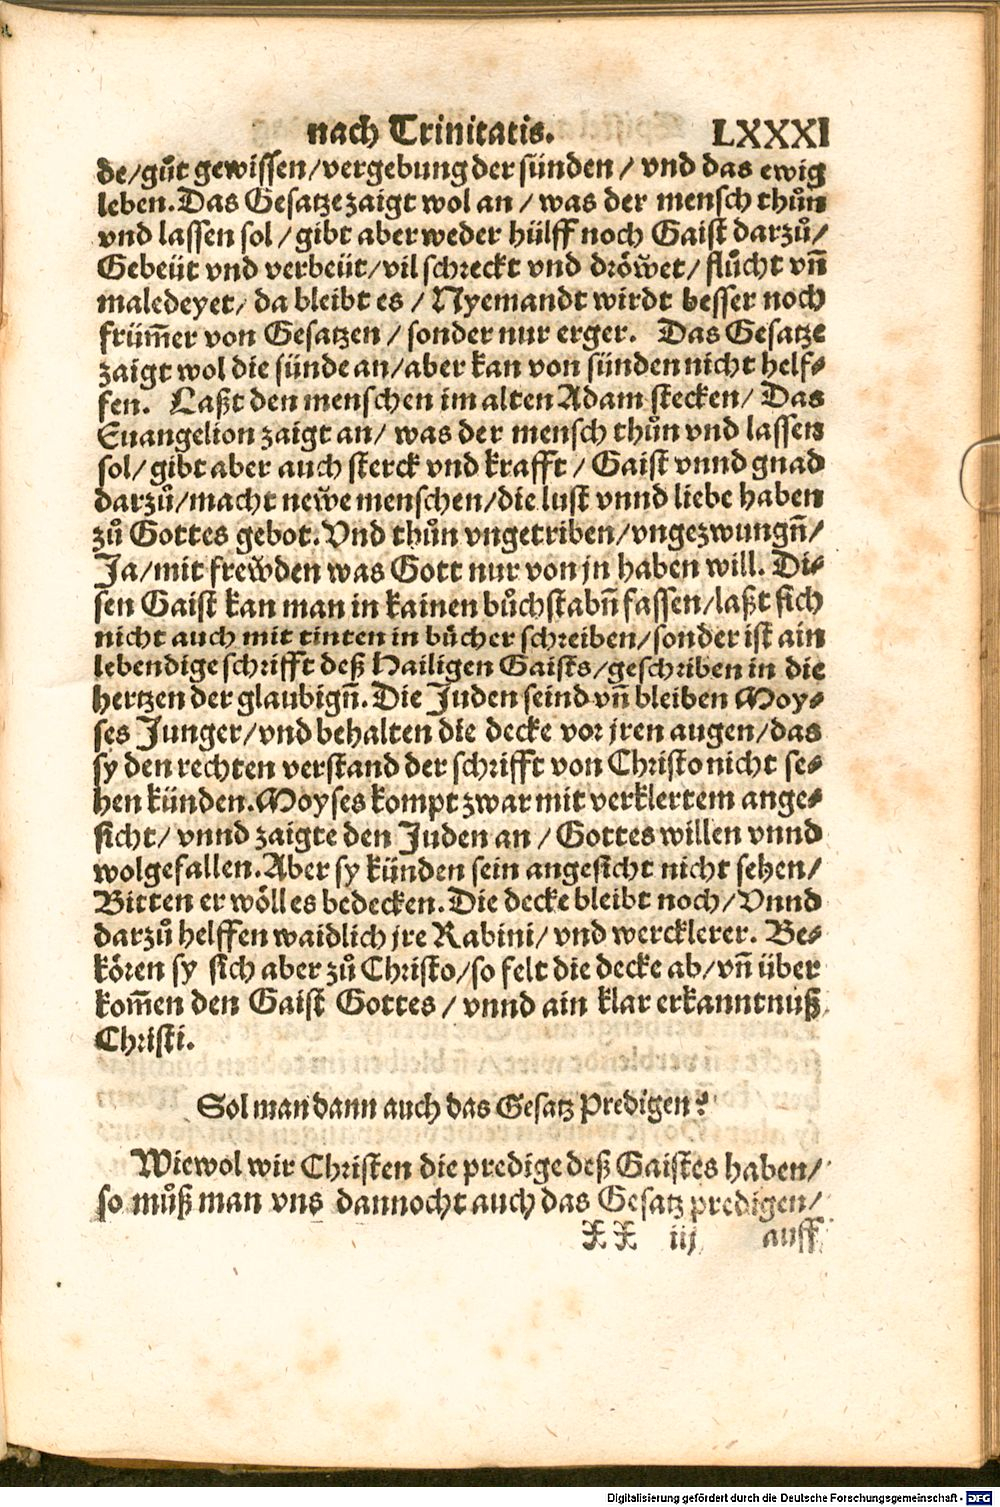 nach Trinitatis. LXXXI
de/guͦt gewissen/vergebung der sünden / vnd das ewig
leben. Das Gesatze zaigt wol an / was der mensch thuͦn
vnd lassen sol / gibt aber weder hülff noch Gaist darzuͦ/
Gebeüt vnd verbeüt/vil schreckt vnd dröwet/ fluͦcht vn̄
maledeyet/ da bleibt es / Nyemandt wirdt besser noch
früm̄er von Gesatzen / sonder nur erger. Das Gesatze
zaigt wol die sünde an/aber kan von sünden nicht helf⸗
fen. Laßt den menschen im alten Adam stecken/ Das
Euangelion zaigt an/ was der mensch thuͦn vnd lassen
sol/ gibt aber auch sterck vnd krafft / Gaist vnnd gnad
darzuͦ/macht newe menschen/die lust vnnd liebe haben
zuͦ Gottes gebot. Vnd thuͦn vngetriben/vngezwungn̄/
Ja/mit frewden was Gott nur von jn haben will. Di⸗
sen Gaist kan man in kainen buͦchstabn̄ fassen/laßt sich
nicht auch mit tinten in buͤcher schreiben/sonder ist ain
lebendige schrifft deß Hailigen Gaists/geschriben in die
hertzen der glaubign̄. Die Juden seind vn̄ bleiben Moy⸗
ses Junger/vnd behalten die decke vor jren augen/das
sy den rechten verstand der schrifft von Christo nicht se⸗
hen künden. Moyses kompt zwar mit verklertem ange⸗
sicht/ vnnd zaigte den Juden an / Gottes willen vnnd
wolgefallen. Aber sy künden sein angesicht nicht sehen/
Bitten er wöll es bedecken. Die decke bleibt noch/ Vnnd
darzuͦ helffen waidlich jre Rabini/ vnd wercklerer. Be⸗
kören sy sich aber zuͦ Christo/so felt die decke ab/vn̄ über
kom̄en den Gaist Gottes / vnnd ain klar erkanntnuß
Christi.
Sol man dann auch das Gesatz Predigen?
Wiewol wir Christen die predige deß Gaistes haben/
so muͦß man vns dannocht auch das Gesatz predigen/
XX iij auff
Digitalisierung gefördert durch die Deutsche Forschungsgemeinschaft - DFG